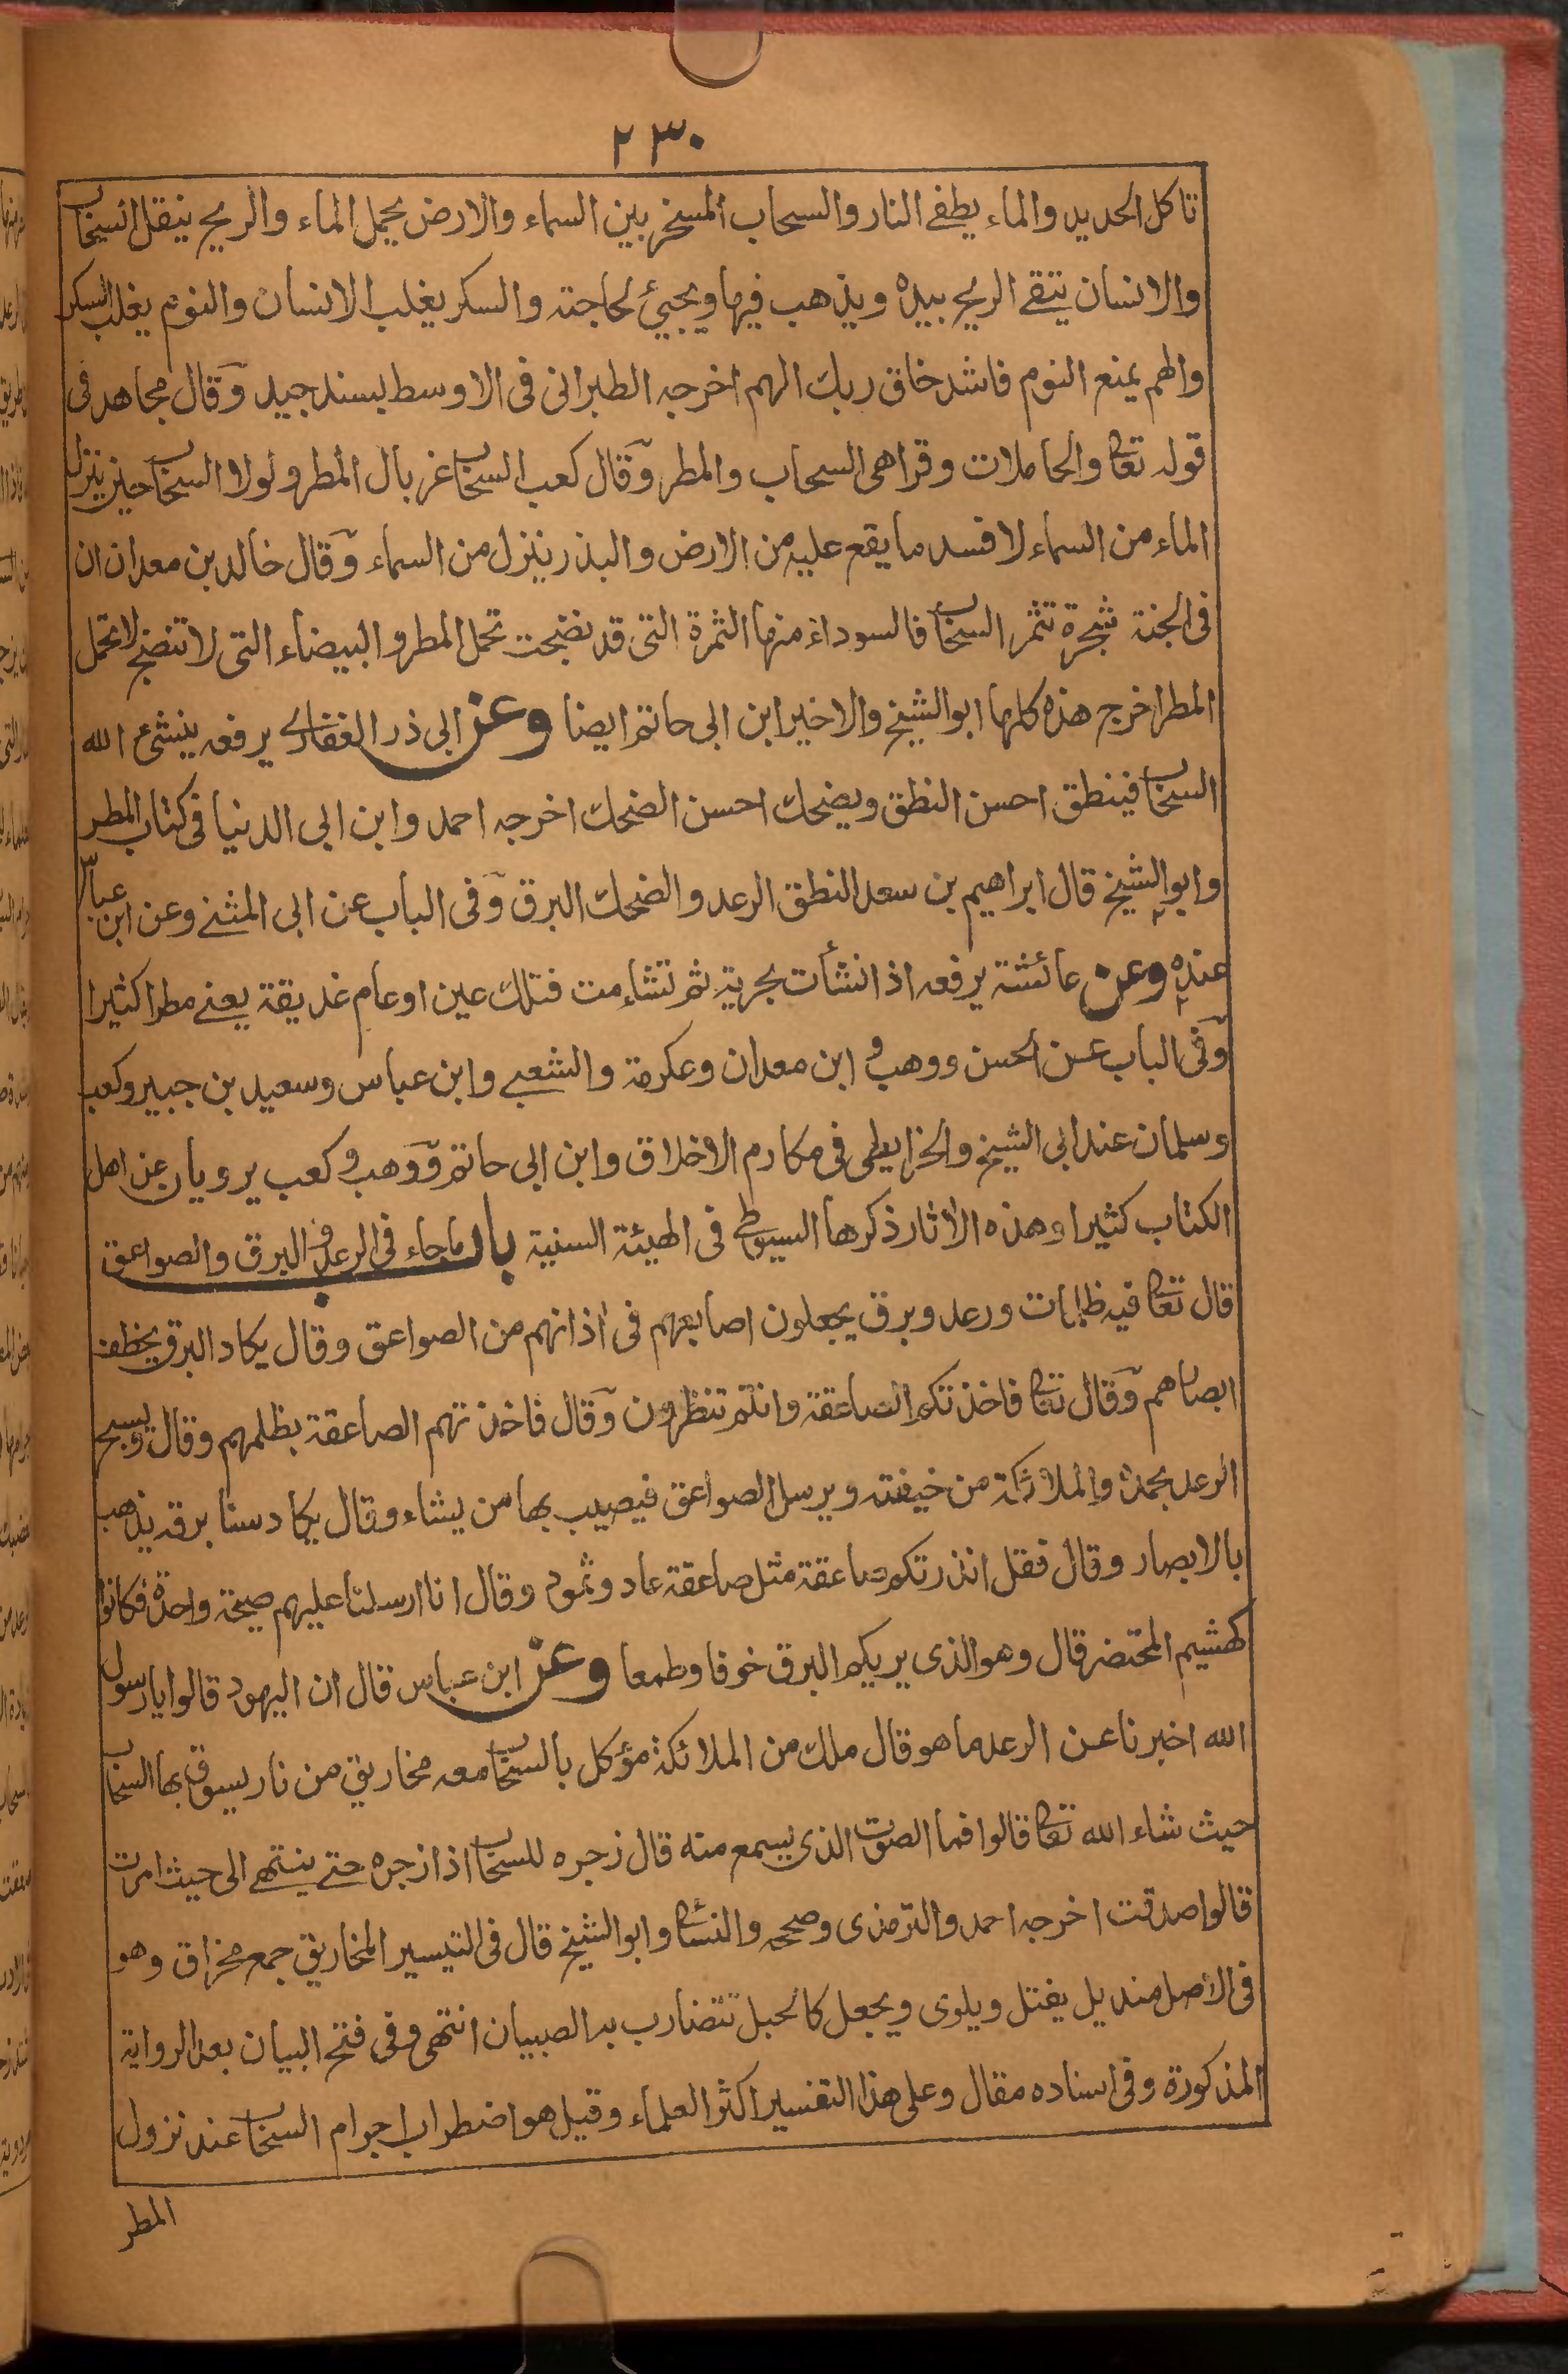 ٢٣٠
تاكل الحديد والماء يطفے النار والسحاب المسخر بين السماء والارض يحمل الماء والريح ينقل السحاب
والانسان يتقے الريح بيده ويذهب فيها ويجيئ لحاجته والسكر يغلب الانسان والنوم يغلب السكر
والهم يمنع النوم فاشد خلق ربك الهم اخرجه الطبرانى فى الاوسط بسند جيد وقال مجاهد فى
قوله تعالى والحاملات وقرا هى السحاب والمطر وقال كعب السحاب غربال المطر ولولا السحاب حين ينزل
الماء من السماء لافسد ما يقع عليه من الارض والبذر ينزل من السماء وقال خالد بن معدان ان
فى الجنة شجرة تثمر السحاب فالسوداء منها الثمرة التى قد نضجت تحمل المطر والبيضاء التى لا تنضج لا تحمل
المطر اخرج هذه كلها ابو الشيخ والاخير ابن ابى حاتم ايضا وعن ابى ذر الغفارے يرفعه ينشئ الله
السحاب فينطق احسن النطق ويضحك احسن الضحك اخرجه احمد وابن ابى الدنيا فى كتاب المطر
وابو الشيخ قال ابراهيم بن سعد النطق الرعد والضحك البرق وفى الباب عن ابى المثنے وعن ابن عباس
عنده وعن عائشة يرفعه اذا نشأت بحرية ثم تشاءمت فتلك عين او عام غديقة يعنے مطرا كثيرا
وفى الباب عن الحسن ووهب و ابن معدان وعكرمة والشعبے وابن عباس وسعيد بن جبير وكعب
وسلمان عند ابى الشيخ والخرايطى فى مكارم الاخلاق وابن ابى حاتم ووهب وكعب يرويان عن اهل
الكتاب كثيرا وهذه الاثار ذكرها السيوطے فى الهيئة السنية باب ما جاء فى الرعد والبرق والصواعق
قال تعالى فيه ظلمات ورعد وبرق يجعلون اصابعهم فى اذانهم من الصواعق وقال يكاد البرق يخطف
ابصارهم وقال تعالى فاخذتكم الصاعقة وانتم تنظرون وقال فاخذتهم الصاعقة بظلمهم وقال ويسبح
الرعد بحمده والملائكة من خيفته ويرسل الصواعق فيصيب بها من يشاء وقال يكاد سنا برقه يذهب
بالابصار وقال فقل انذرتكم صاعقة مثل صاعقة عاد وثمود وقال انا ارسلنا عليهم صيحة واحدة فكانوا
كهشيم المحتضر قال وهو الذى يريكم البرق خوفا وطمعا وعن ابن عباس قال ان اليهود قالوا يا رسول
الله اخبرنا عن الرعد ما هو قال ملك من الملائكة مؤكل بالسحاب معه مخاريق من نار يسوق بها السحاب
حيث شاء الله تعالى قالوا فما الصوت الذى يسمع منه قال زجره للسحاب اذا زجره حتے ينتهے الى حيث امرت
قالوا صدقت اخرجه احمد والترمذى وصححه والنسائى وابو الشيخ قال فى التيسير المخاريق جمع مخراق وهو
فى الاصل منديل يفتل ويلوى ويجعل كالحبل تتضارب به الصبيان انتهى وفى فتح البيان بعد الرواية
المذكورة وفى اسناده مقال وعلى هذا التفسير اكثر العلماء وقيل هو اضطراب اجرام السحاب عند نزول
المطر